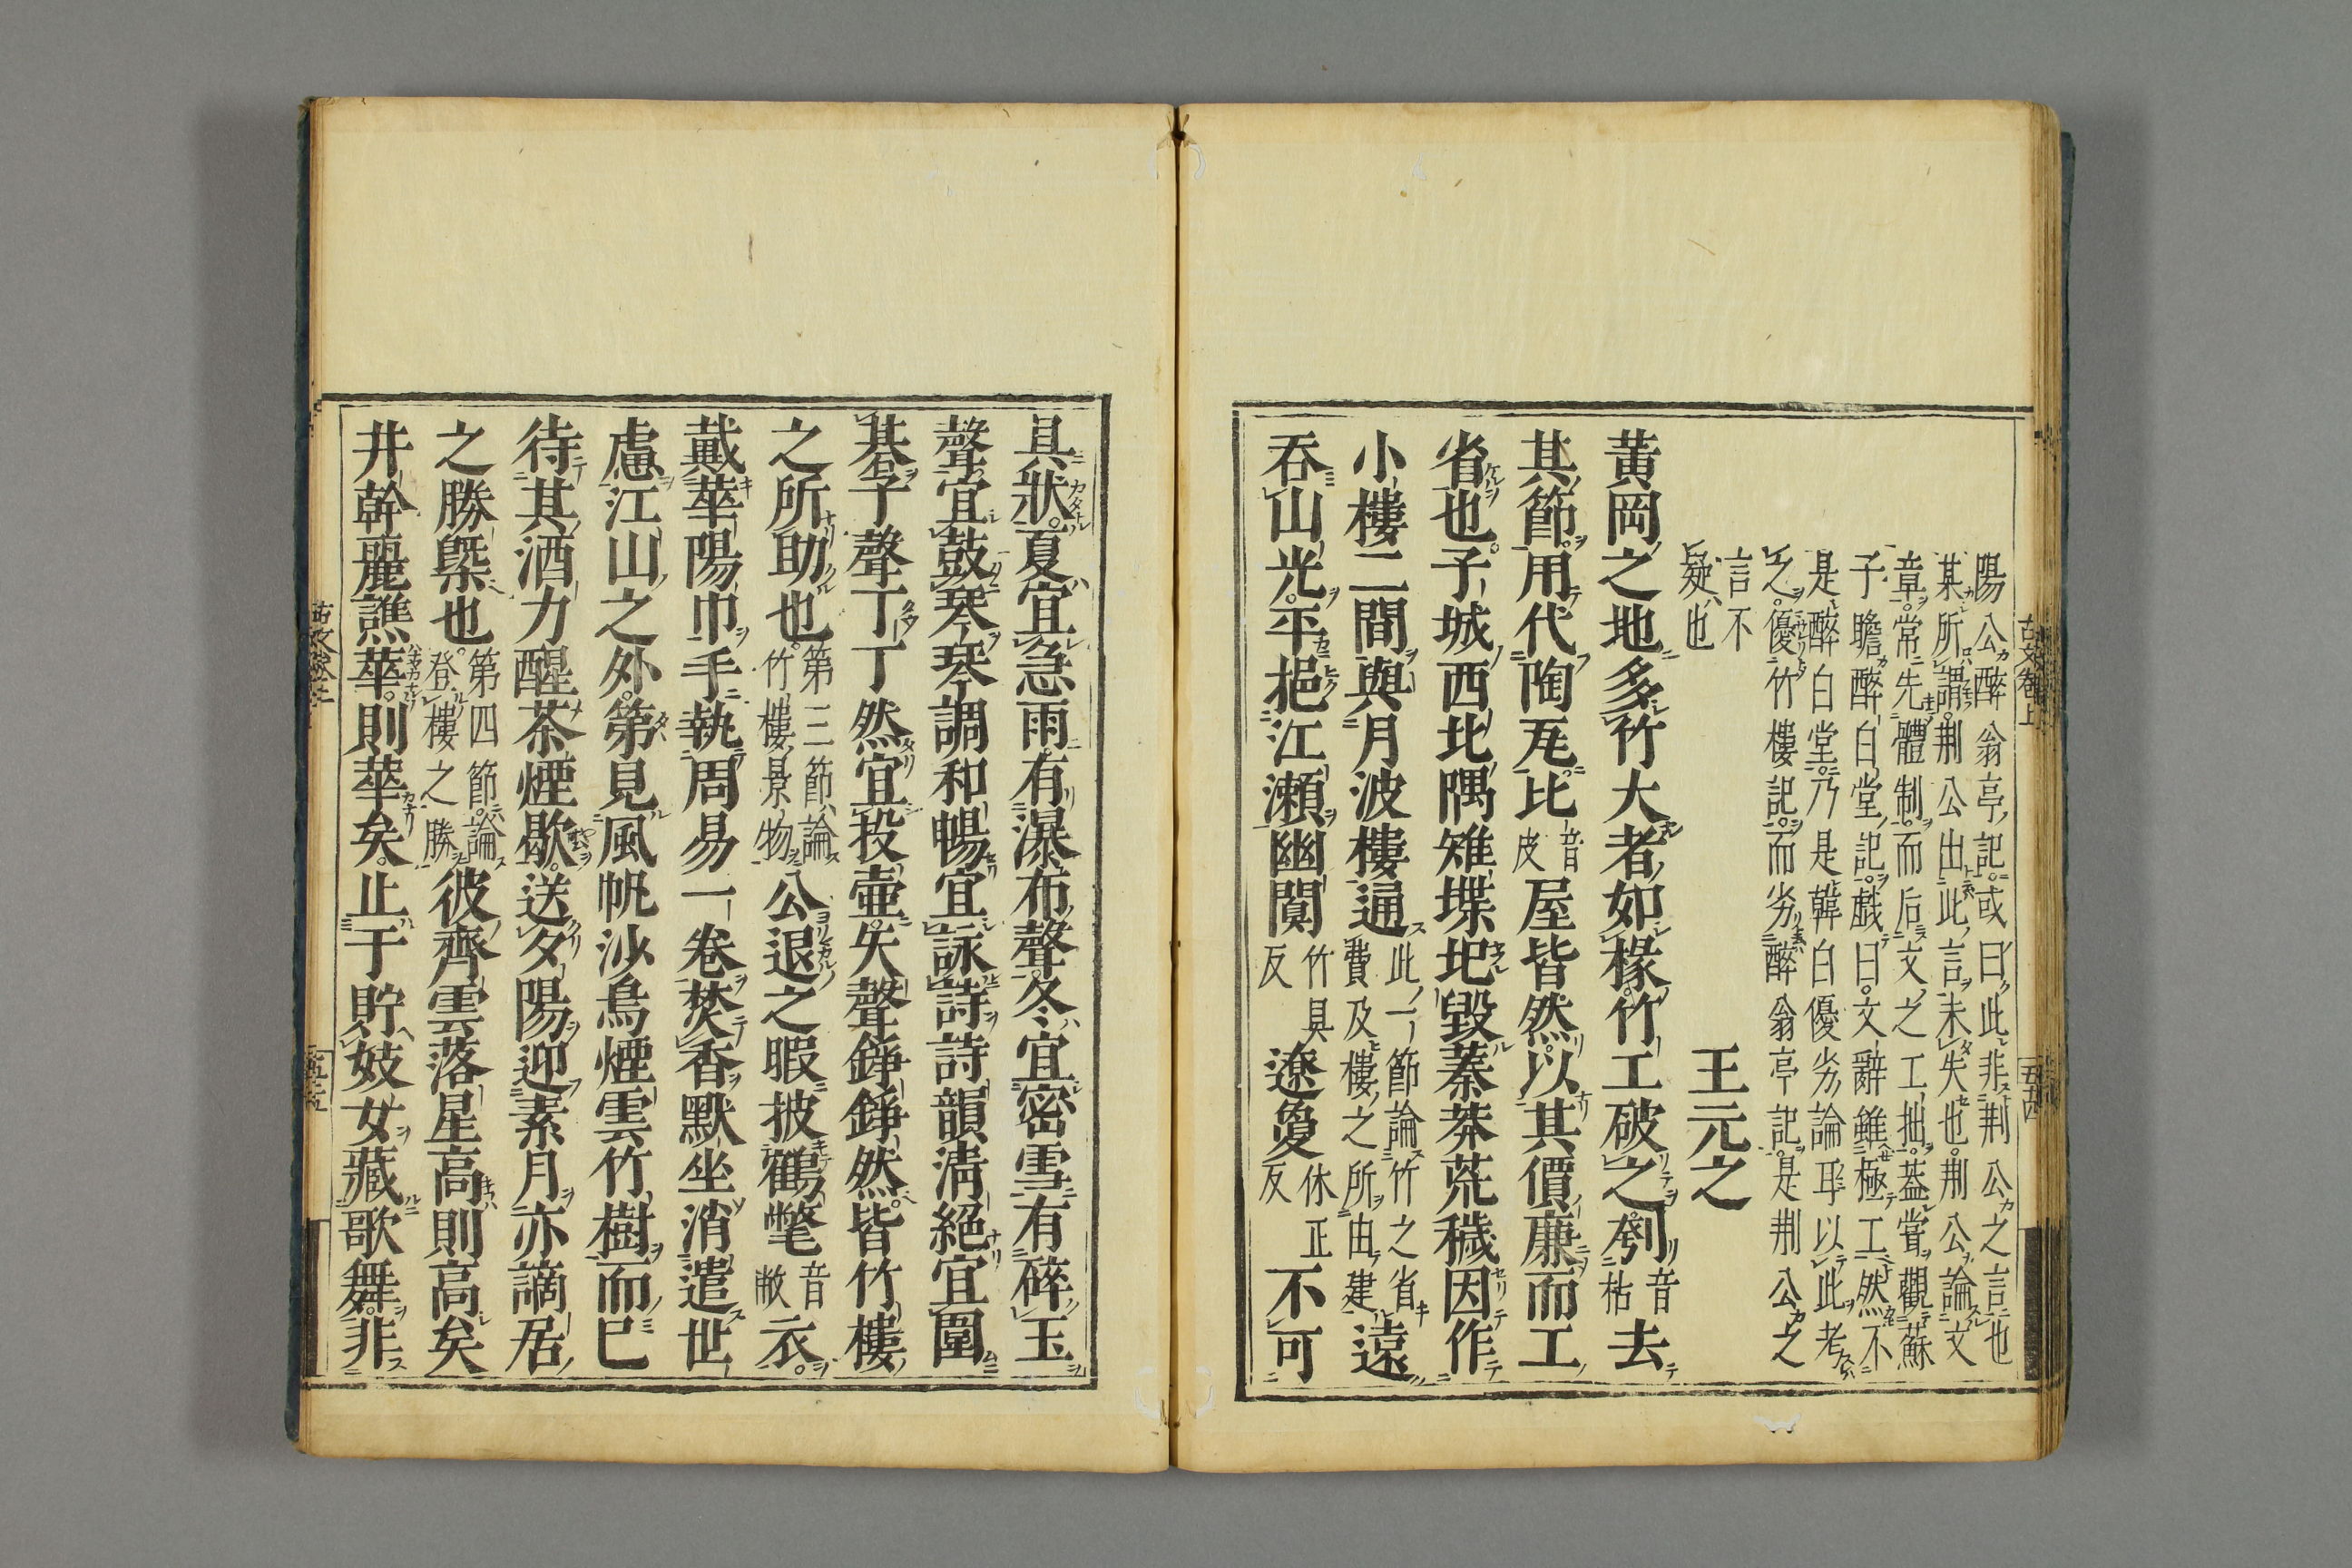 陽公醉翁亭記或曰此非荆公之言也
某所謂荆公出此言未失也荆公論文
章常先體制而后文之工拙蓋嘗觀蘇
子瞻醉白堂記戲曰文辭雖極工然不
是醉白堂乃是韓白優劣論耳以此考
之優竹樓記而劣醉翁亭記是荆公之
言不
疑也
王元之
黃岡之地多竹大者如椽竹工破之刳音枯去
其節用代陶瓦比音皮屋皆然以其價廉而工
省也子城西北隅雉堞圮毀蓁莽荒穢因作
小樓二間與月波樓通此一節論竹之省費及樓之所由建遠
吞山光平挹江瀨幽闃竹具反遼敻休正反不可
具狀夏宜急雨有瀑布聲冬宜密雪有碎玉
聲宜鼓琴琴調和暢宜詠詩詩韻淸絕宜圍
棊子聲丁丁然宜投壷矢聲錚錚然皆竹樓
之所助也第三節論竹樓景物公退之暇披鶴氅音敞衣
戴華陽巾手執周易一卷焚香默坐消遣世
慮江山之外第見風帆沙鳥煙雲竹樹而已
待其酒力醒茶煙歇送夕陽迎素月亦謫居
之勝槩也第四節論登樓之勝彼齊雲落星高則高矣
井幹麗譙華則華矣止于貯妓女藏歌舞非